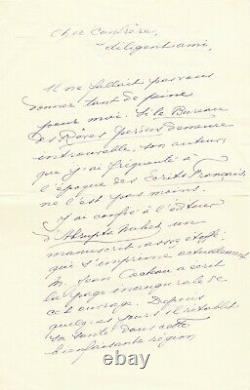 Cher Confrère,
diligent ami,
Il ne fallait pas vous
donner tant de peine
pour moi. Si le Bureau
des Rêves perdus demeure
introuvable, son auteur,
que j'ai fréquenté à
l'époque des Écrits Français,
ne l'est pas moins.
J'ai confié à l'éditeur
un
manuscrit assez étoffé
qui s'imprime actuellement.
M. Jean Cocteau a écrit
la page inaugurale de
cet ouvrage. Depuis
quelques jours il rétablit
sa santé dans cette
bienfaisante région